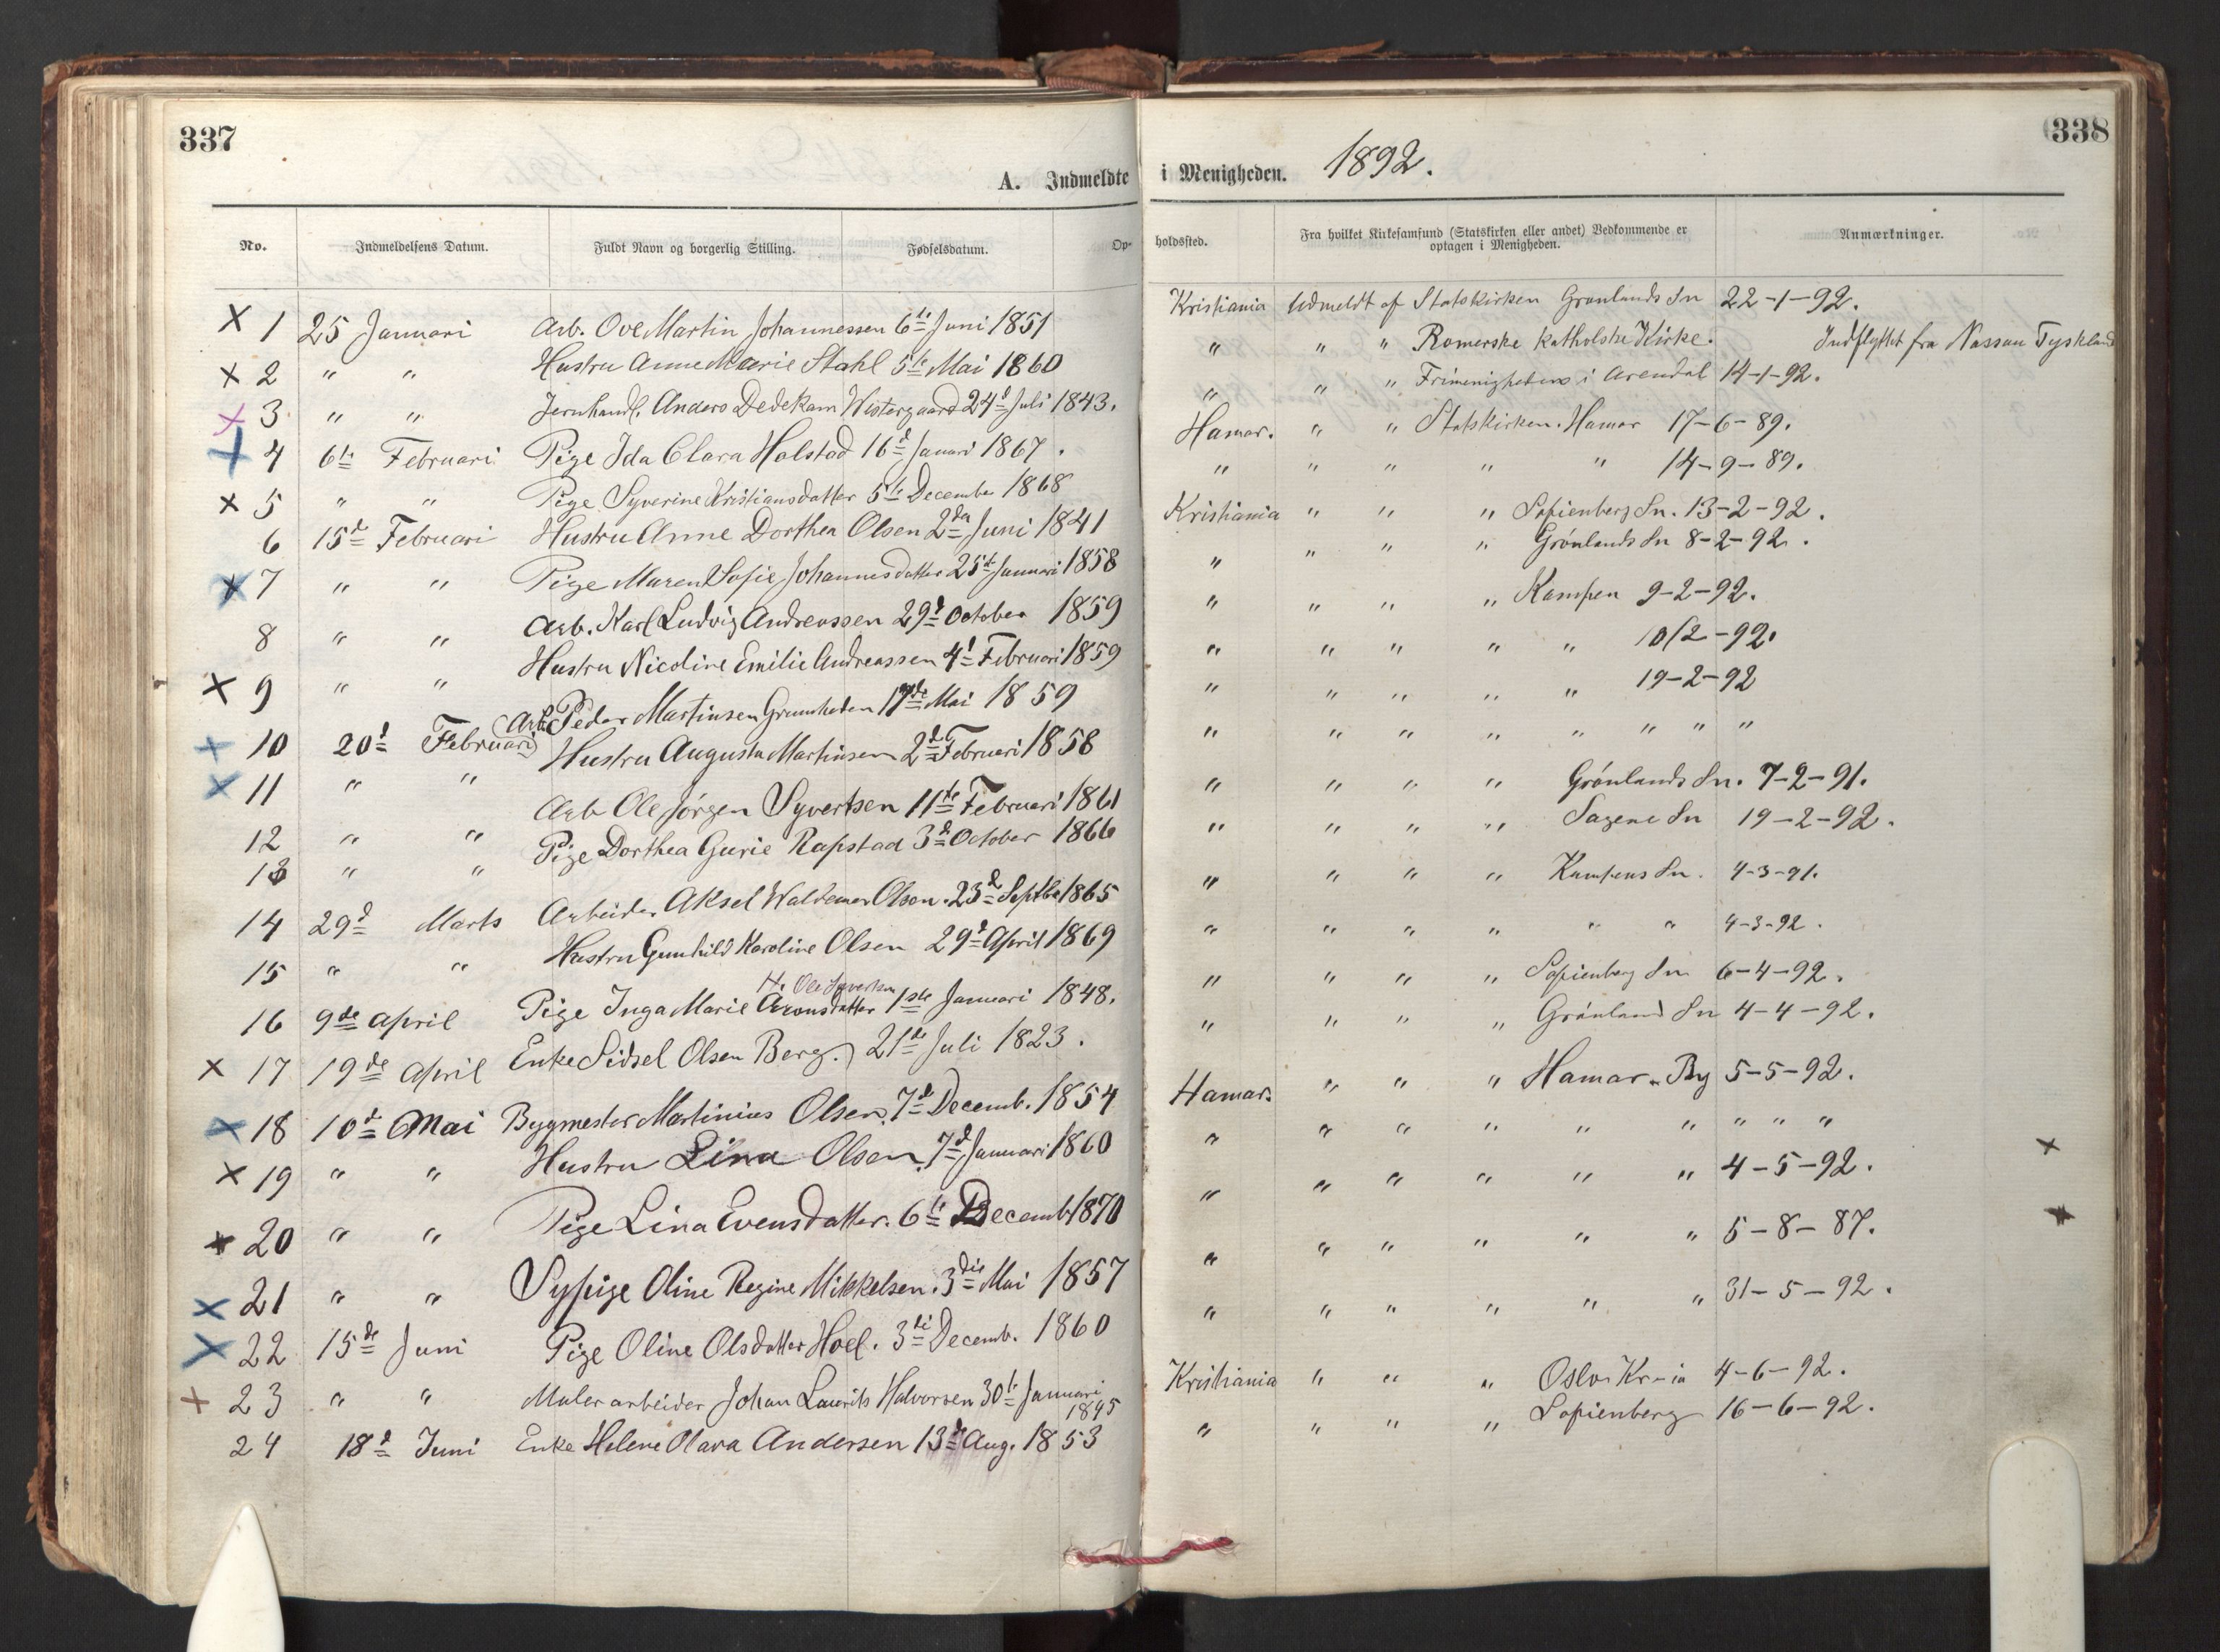 337
A. Indmeldte
No. Indmeldelsens Datum. Fuldt Navn og borgerlig Stilling. Fødselsdatum. Op-
× 1 25 Januari Arb. Ove Martin Johannessen 6te Juni 1851
× 2 " " Hustru Anne Marie Stahl 5te Mai 1860
× 3 " " Jernhandl. Anders Dedekam Wistergaard 24d Juli 1843.
× 4 6te Februari Pige Ida Clara Holstad 16d Januari 1867.
× 5 " " Pige Syverine Kristiansdatter 5te December 1868
6 15de Februari Hustru Anne Dorthea Olsen 2den Juni 1841
× 7 " " Pige Maren Sofie Johannesdatter 25de Januari 1858
8 " " Arb. Karl Ludvig Andreassen 29d October 1859
× 9 " " Hustru Nicoline Emilie Andreassen 4d Februari 1859
× 10 20d Februari Arb. Peder Martinsen 17de Mai 1859
× 11 " " Hustru Augusta Martinsen 2d Februari 1858
12 " " Arb Ole Jørgen Syvertsen 11te Februari 1861
13 " " Pige Dorthea Gurie Rapstad 3d October 1866
14 29d Marts Arbeider Aksel Waldemar Olsen. 23d Septbr 1865
15 " " Hustru Gunhild Karoline Olsen 29d April 1869
H. Ole Syvertsen
16 9de April Pige Inga Marie Aronsdatter 1ste Januari 1848.
× 17 19de April Enke Sidsel Olsen Berg. 21de Juli 1823.
× 18 10d Mai Bygmester Martinius Olsen. 7d Decemb. 1854
× 19 " " Hustru Lina Olsen. 7d Januari 1860
× 20 " " Pige Lina Evensdatter. 6te Decemb 1870
× 21 " " Sypige Oline Regine Mikkelsen. 3die Mai 1857
× 22 15de Juni Pige Oline Olsdatter Hoel. 3di Decemb. 1860
× 23 " " Malerarbeider Johan Laurits Halvorsen 30te Januari
1845
24 18d Juni Enke Helene Olava Andersen 13d Aug. 1853
338
i Menigheden. 1892.
holdssted. Fra hvilket Kirkesamfund (Statskirken eller andet) Vedkommende er optagen i Menigheden. Anmærkninger.
Kristiania Udmeldt af Statskirken Grønlands Sn 22-1-92.
" " " Romerske katholske Kirke. Indflyttet fra Nassau Tyskland
" " " Frimenigheden i Arendal 14-1-92.
Hamar. " " Statskirken. Hamar 17-6-89.
" " " " " 14-9-89.
Kristiania " " " Sofienberg Sn. 13-2-92.
" " " " Grønlands Sn 8-2-92.
" " " " Kampen 9-2-92.
" " " " " 10/2-92.
" " " " " 19-2-92
" " " " " " " "
" " " " Grønlands Sn. 7-2-91.
" " " " Sagene Sn 19-2-92.
" " " " Kampens Sn. 4-3-91.
" " " " " " 4-3-92.
" " " " Sofienberg Sn 6-4-92.
" " " " Grønland Sn 4-4-92.
Hamar. " " " Hamar By 5-5-92.
" " " " " " " " "
" " " " " " 4-5-92. ×
" " " " " " 5-8-87. ×
" " " " " " 31-5-92.
Kristiania " " " Oslo Kr-ia 4-6-92.
" " " " Sofienberg 16-6-92.